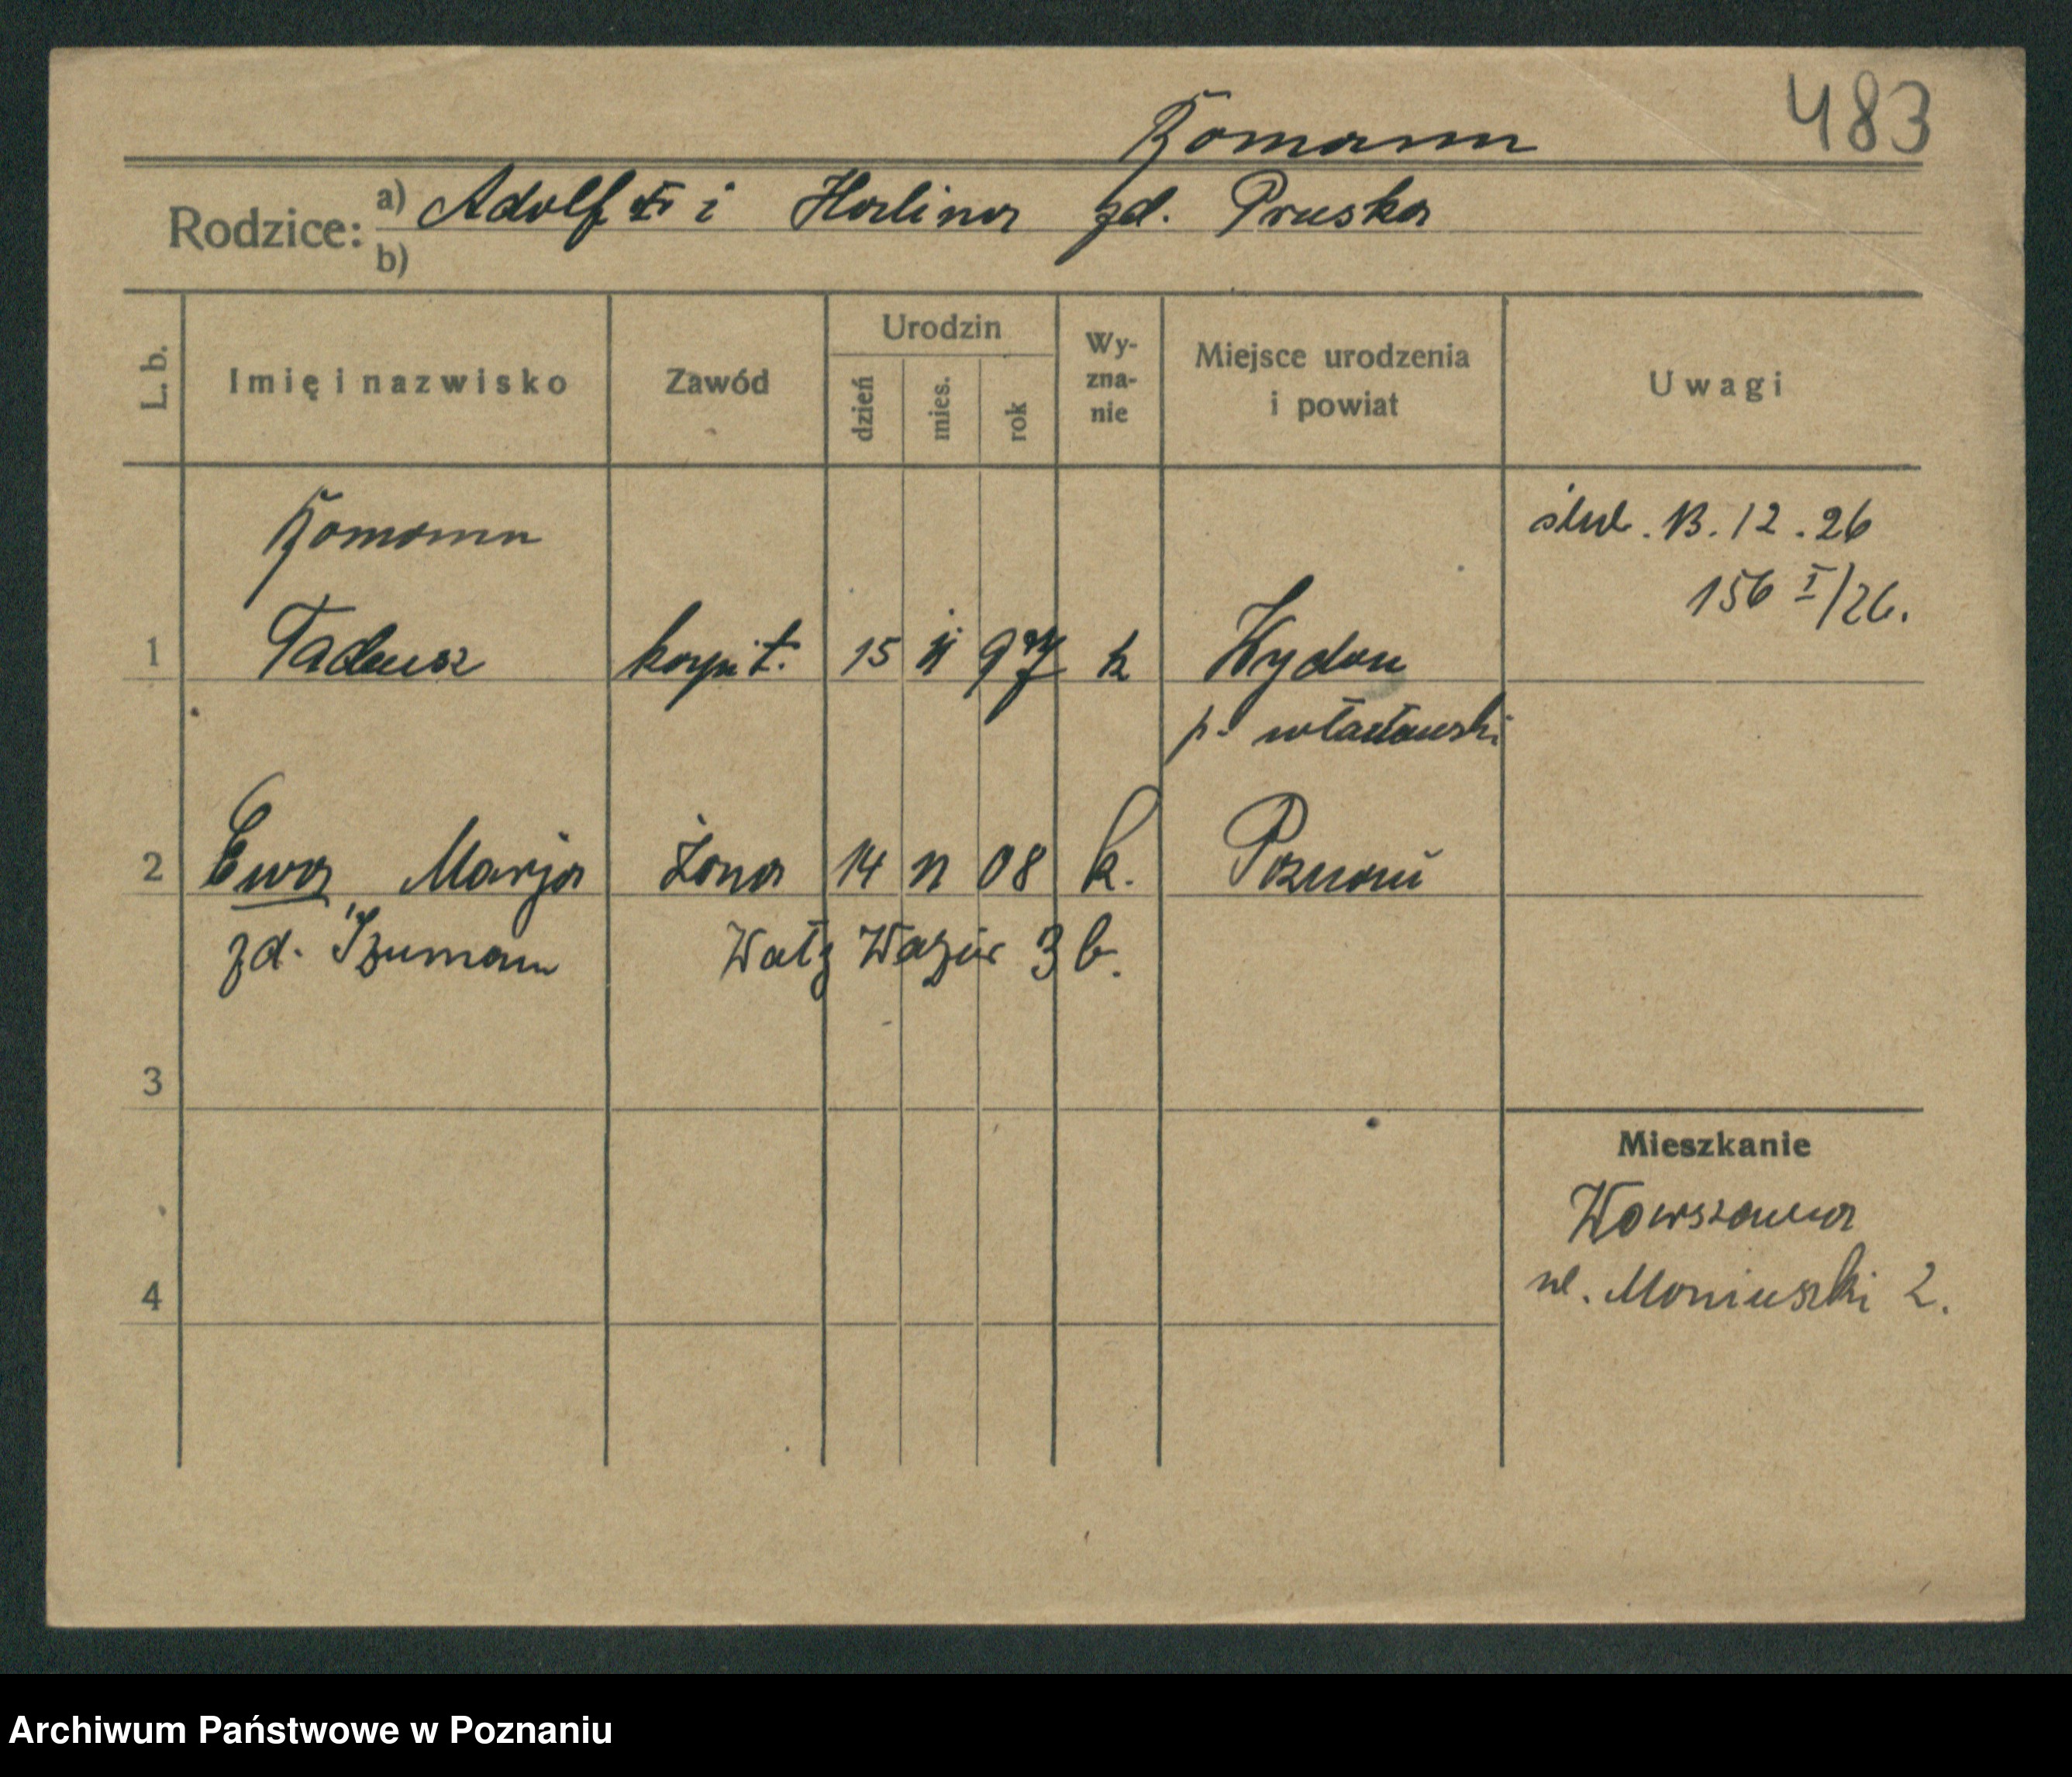 483
Romann
Rodzice: a) Adolf i Halina zd. Pruska
b)
L. b. Imię i nazwisko Zawód Urodzin dzień mies. rok Wy-zna-nie Miejsce urodzenia i powiat Uwagi
Romann
ślub. 13.12.26
156 I/26.
1 Tadeusz kapit. 15 k
p. włocławski
2 Ewa Marja żona 14 08 k. Poznań
zd. Szuman Wały Wazów 3 b.
3
Mieszkanie
Warszawa
4 ul. Moniuszki 2.
Archiwum Państwowe w Poznaniu